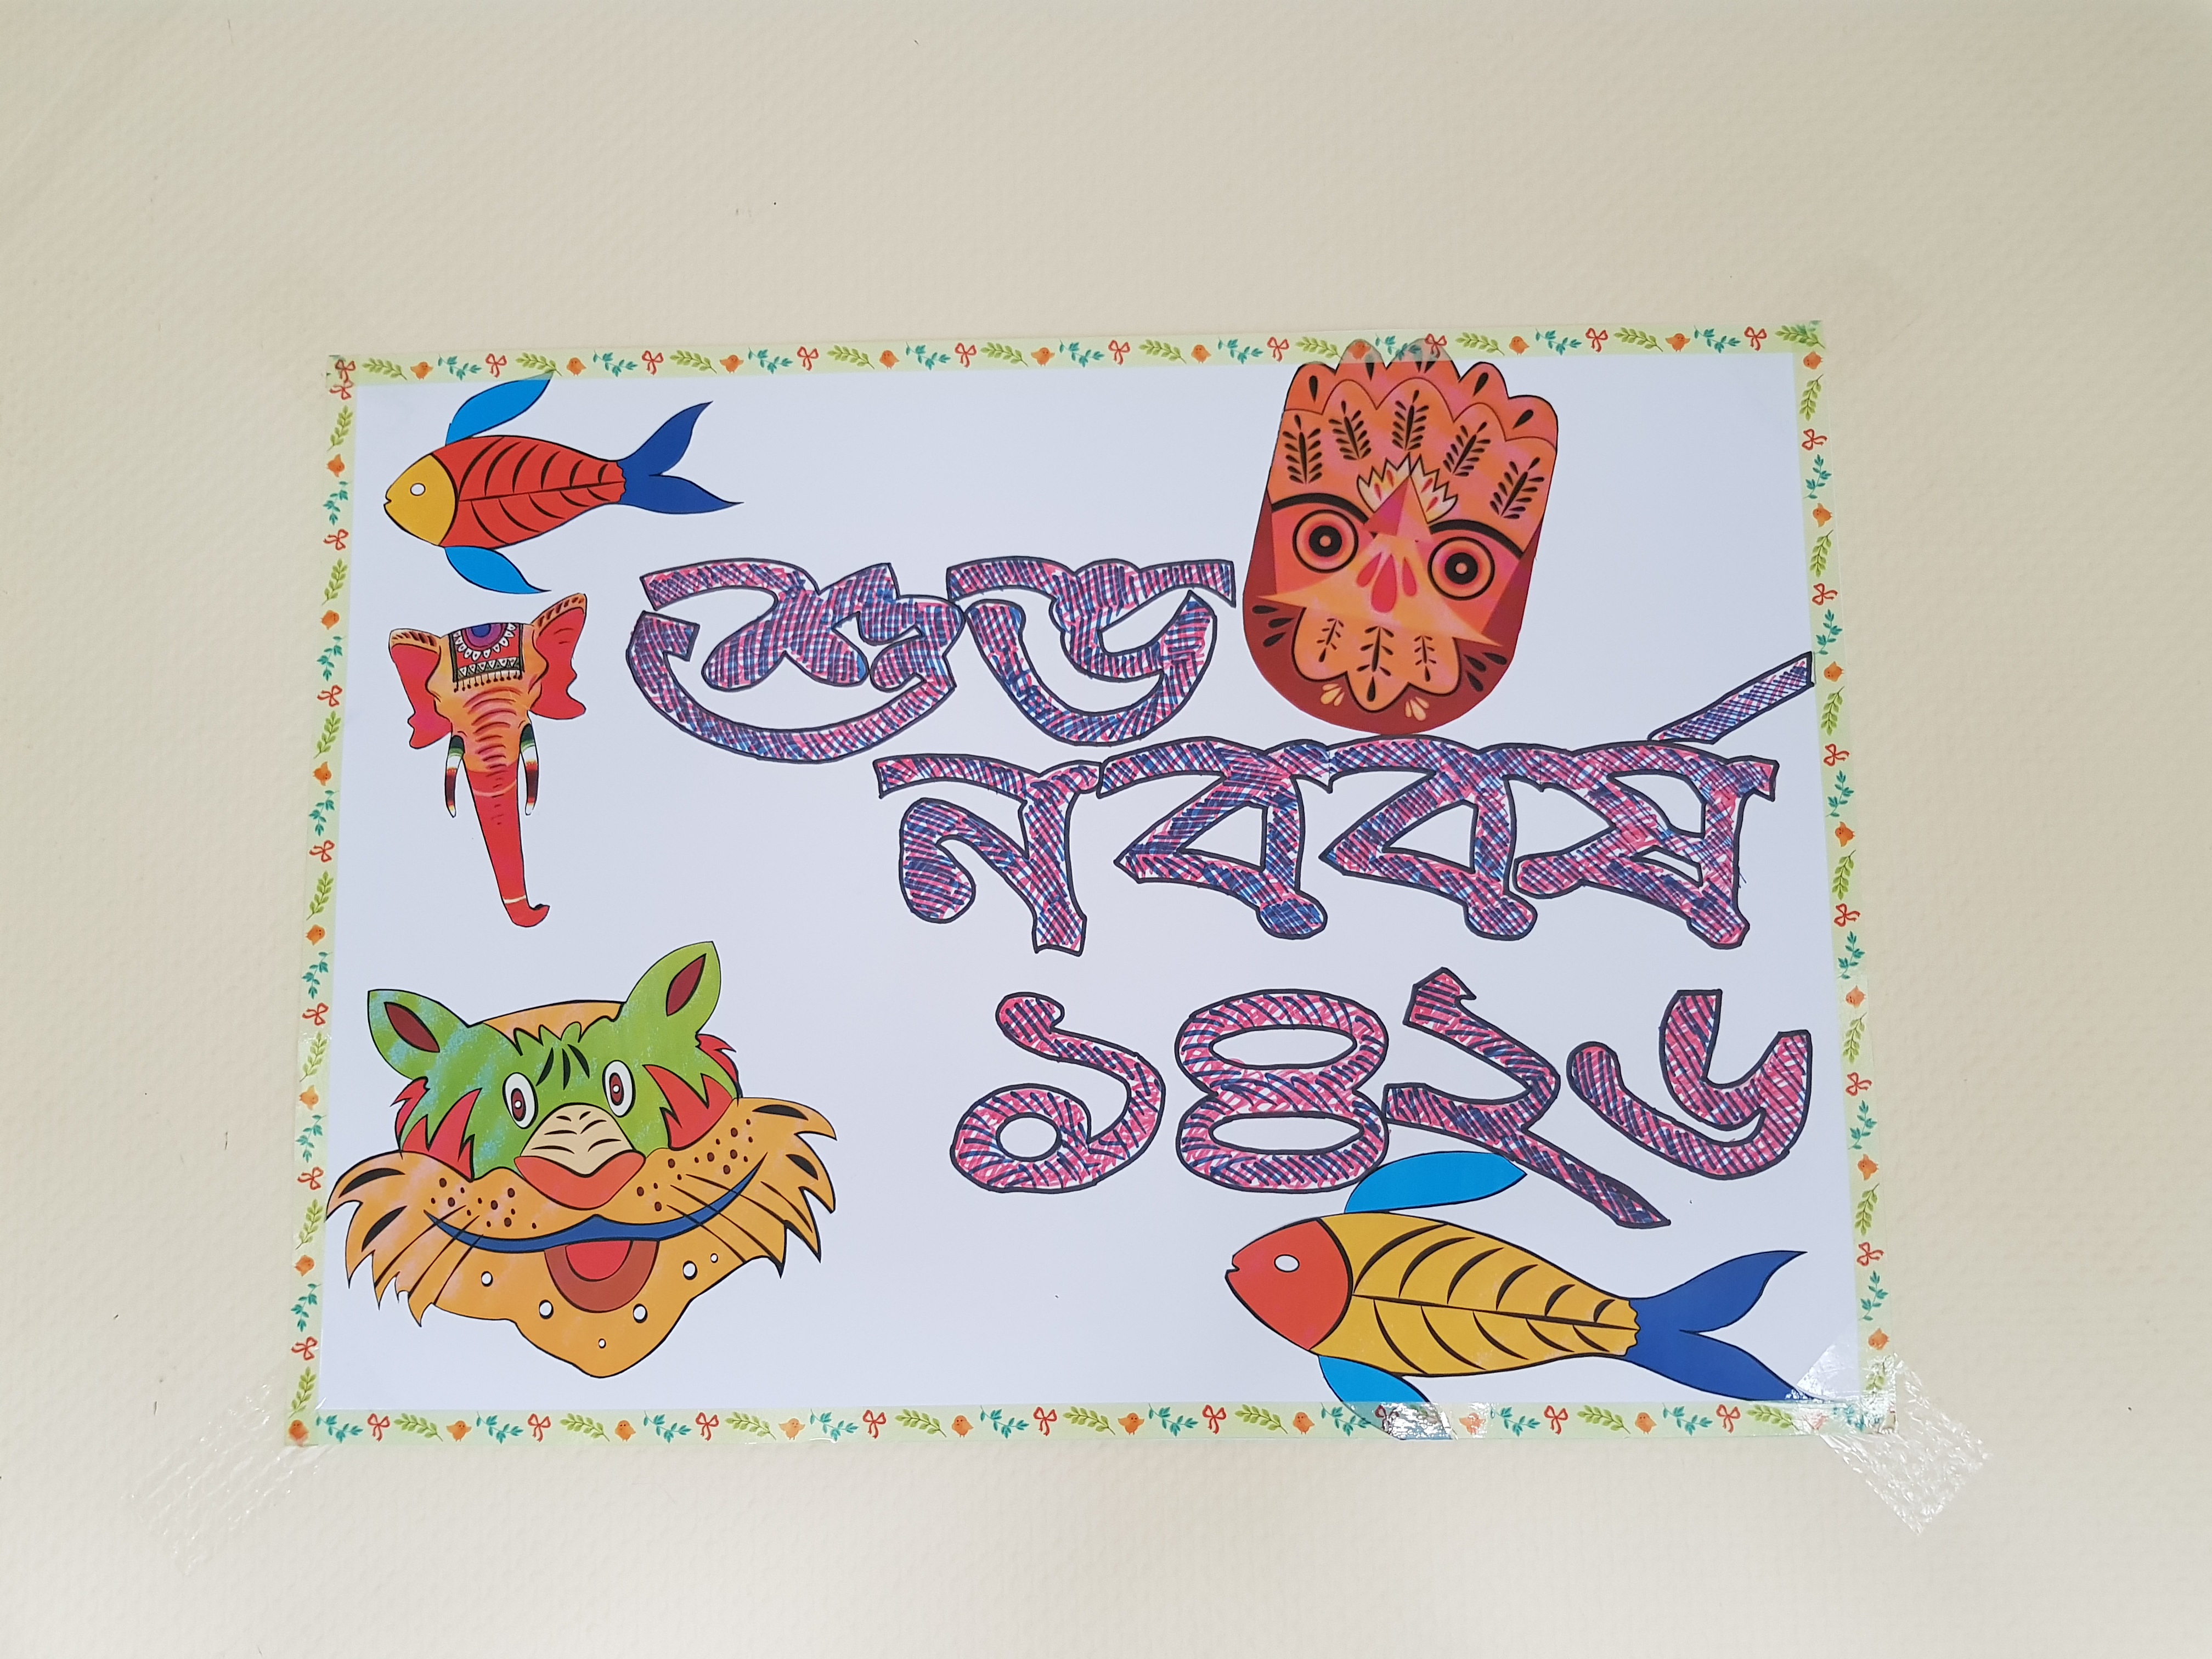 শুভ
নববর্ষ
১৪২৬